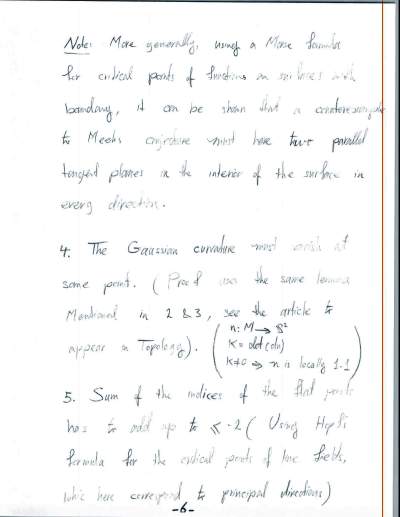 Note: More generally, using a Morse formula
for critical points of functions on surfaces with
boundary, it can be shown that a counterexample
to Meeks conjecture must have two parallel
tangent planes in the interior of the surface in
every direction.
4. The Gaussian curvature must vanish at
some point. (Proof uses the same lemma
Mentioned in 2 & 3, see the article to
appear in Topology). (n: M → S²
K = det(dn)
K≠0 ⇒ n is locally 1-1)
5. Sum of the indices of the flat points
has to add up to ≤ -2 (Using Hopf's
formula for the critical points of line fields,
which here correspond to principal directions)
-6-